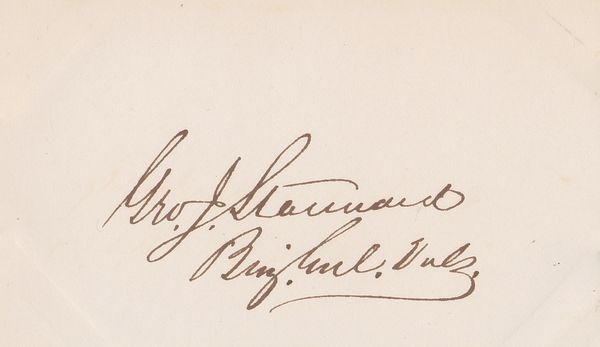 Geo. J. Stannard
Brig. Genl. Vols.